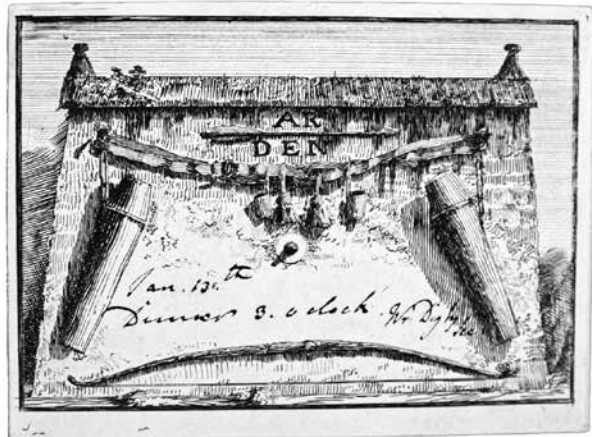 AR
DEN
Jan. 13.th
Dinner 3. o clock. Wr Digby